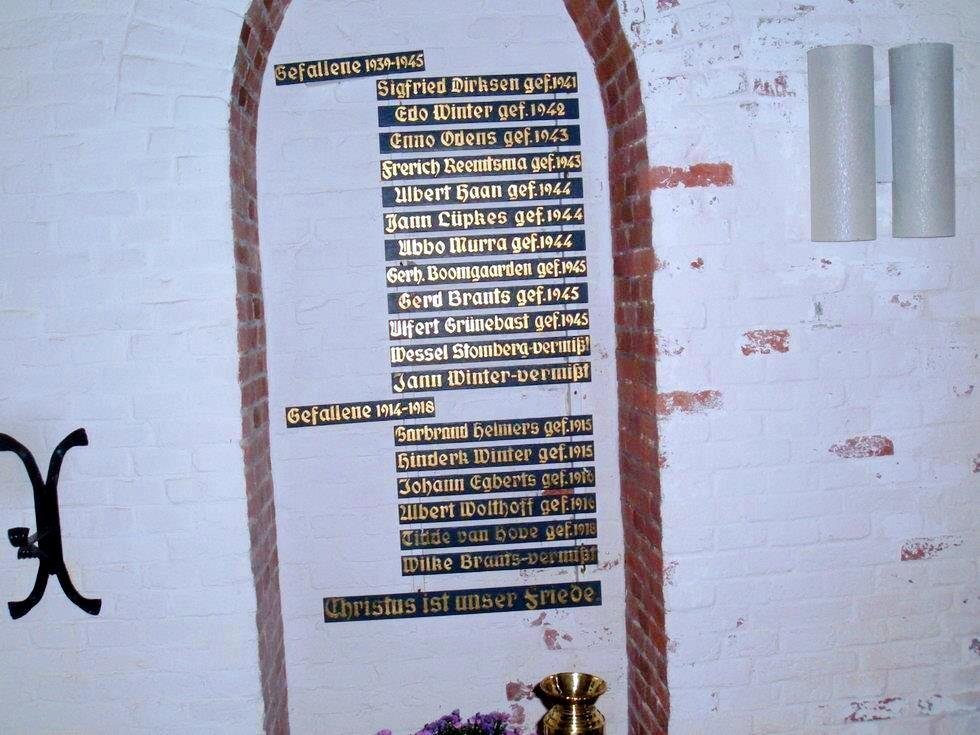 Gefallene 1939-1945
Sigfried Dirksen gef.1941
Edo Winter gef.1942
Enno Odens gef.1943
Frerich Reemtsma gef.1943
Albert Haan gef.1944
Jann Lüpkes gef.1944
Abbo Murra gef.1944
Gerh. Boomgaarden gef.1945
Gerd Brants gef.1945
Ulfert Grünebast gef.1945
Wessel Stomberg-vermißt
Jann Winter-vermißt
Gefallene 1914-1918
Garbrand Helmers gef.1915
Hinderk Winter gef.1915
Johann Egberts gef.1916
Albert Wolthoff gef.1916
van Hove gef.1918
Wilke Brants-vermißt
Christus ist unser Friede.